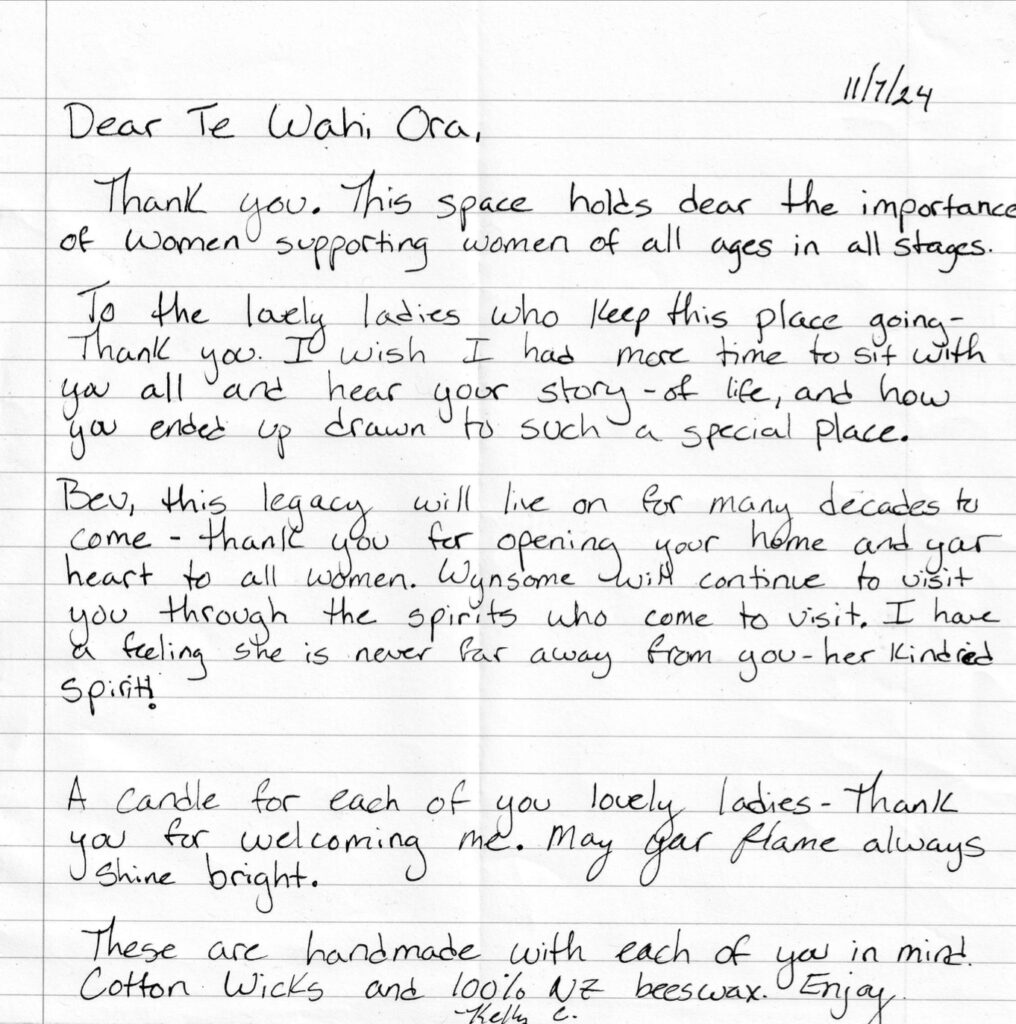 11/7/24
Dear Te Wahi Ora,
Thank you. This space holds dear the importance
of women supporting women of all ages in all stages.
To the lovely ladies who keep this place going-
Thank you. I wish I had more time to sit with
you all and hear your story - of life, and how
you ended up drawn to such a special place.
Bev, this legacy will live on for many decades to
come - thank you for opening your home and your
heart to all women. Wynsome will continue to visit
you through the spirits who come to visit. I have
a feeling she is never far away from you - her kindred
spirit!
A candle for each of you lovely ladies - Thank
you for welcoming me. May your flame always
shine bright.
These are handmade with each of you in mind.
Cotton Wicks and 100% NZ beeswax. Enjoy.
-Kelly C.